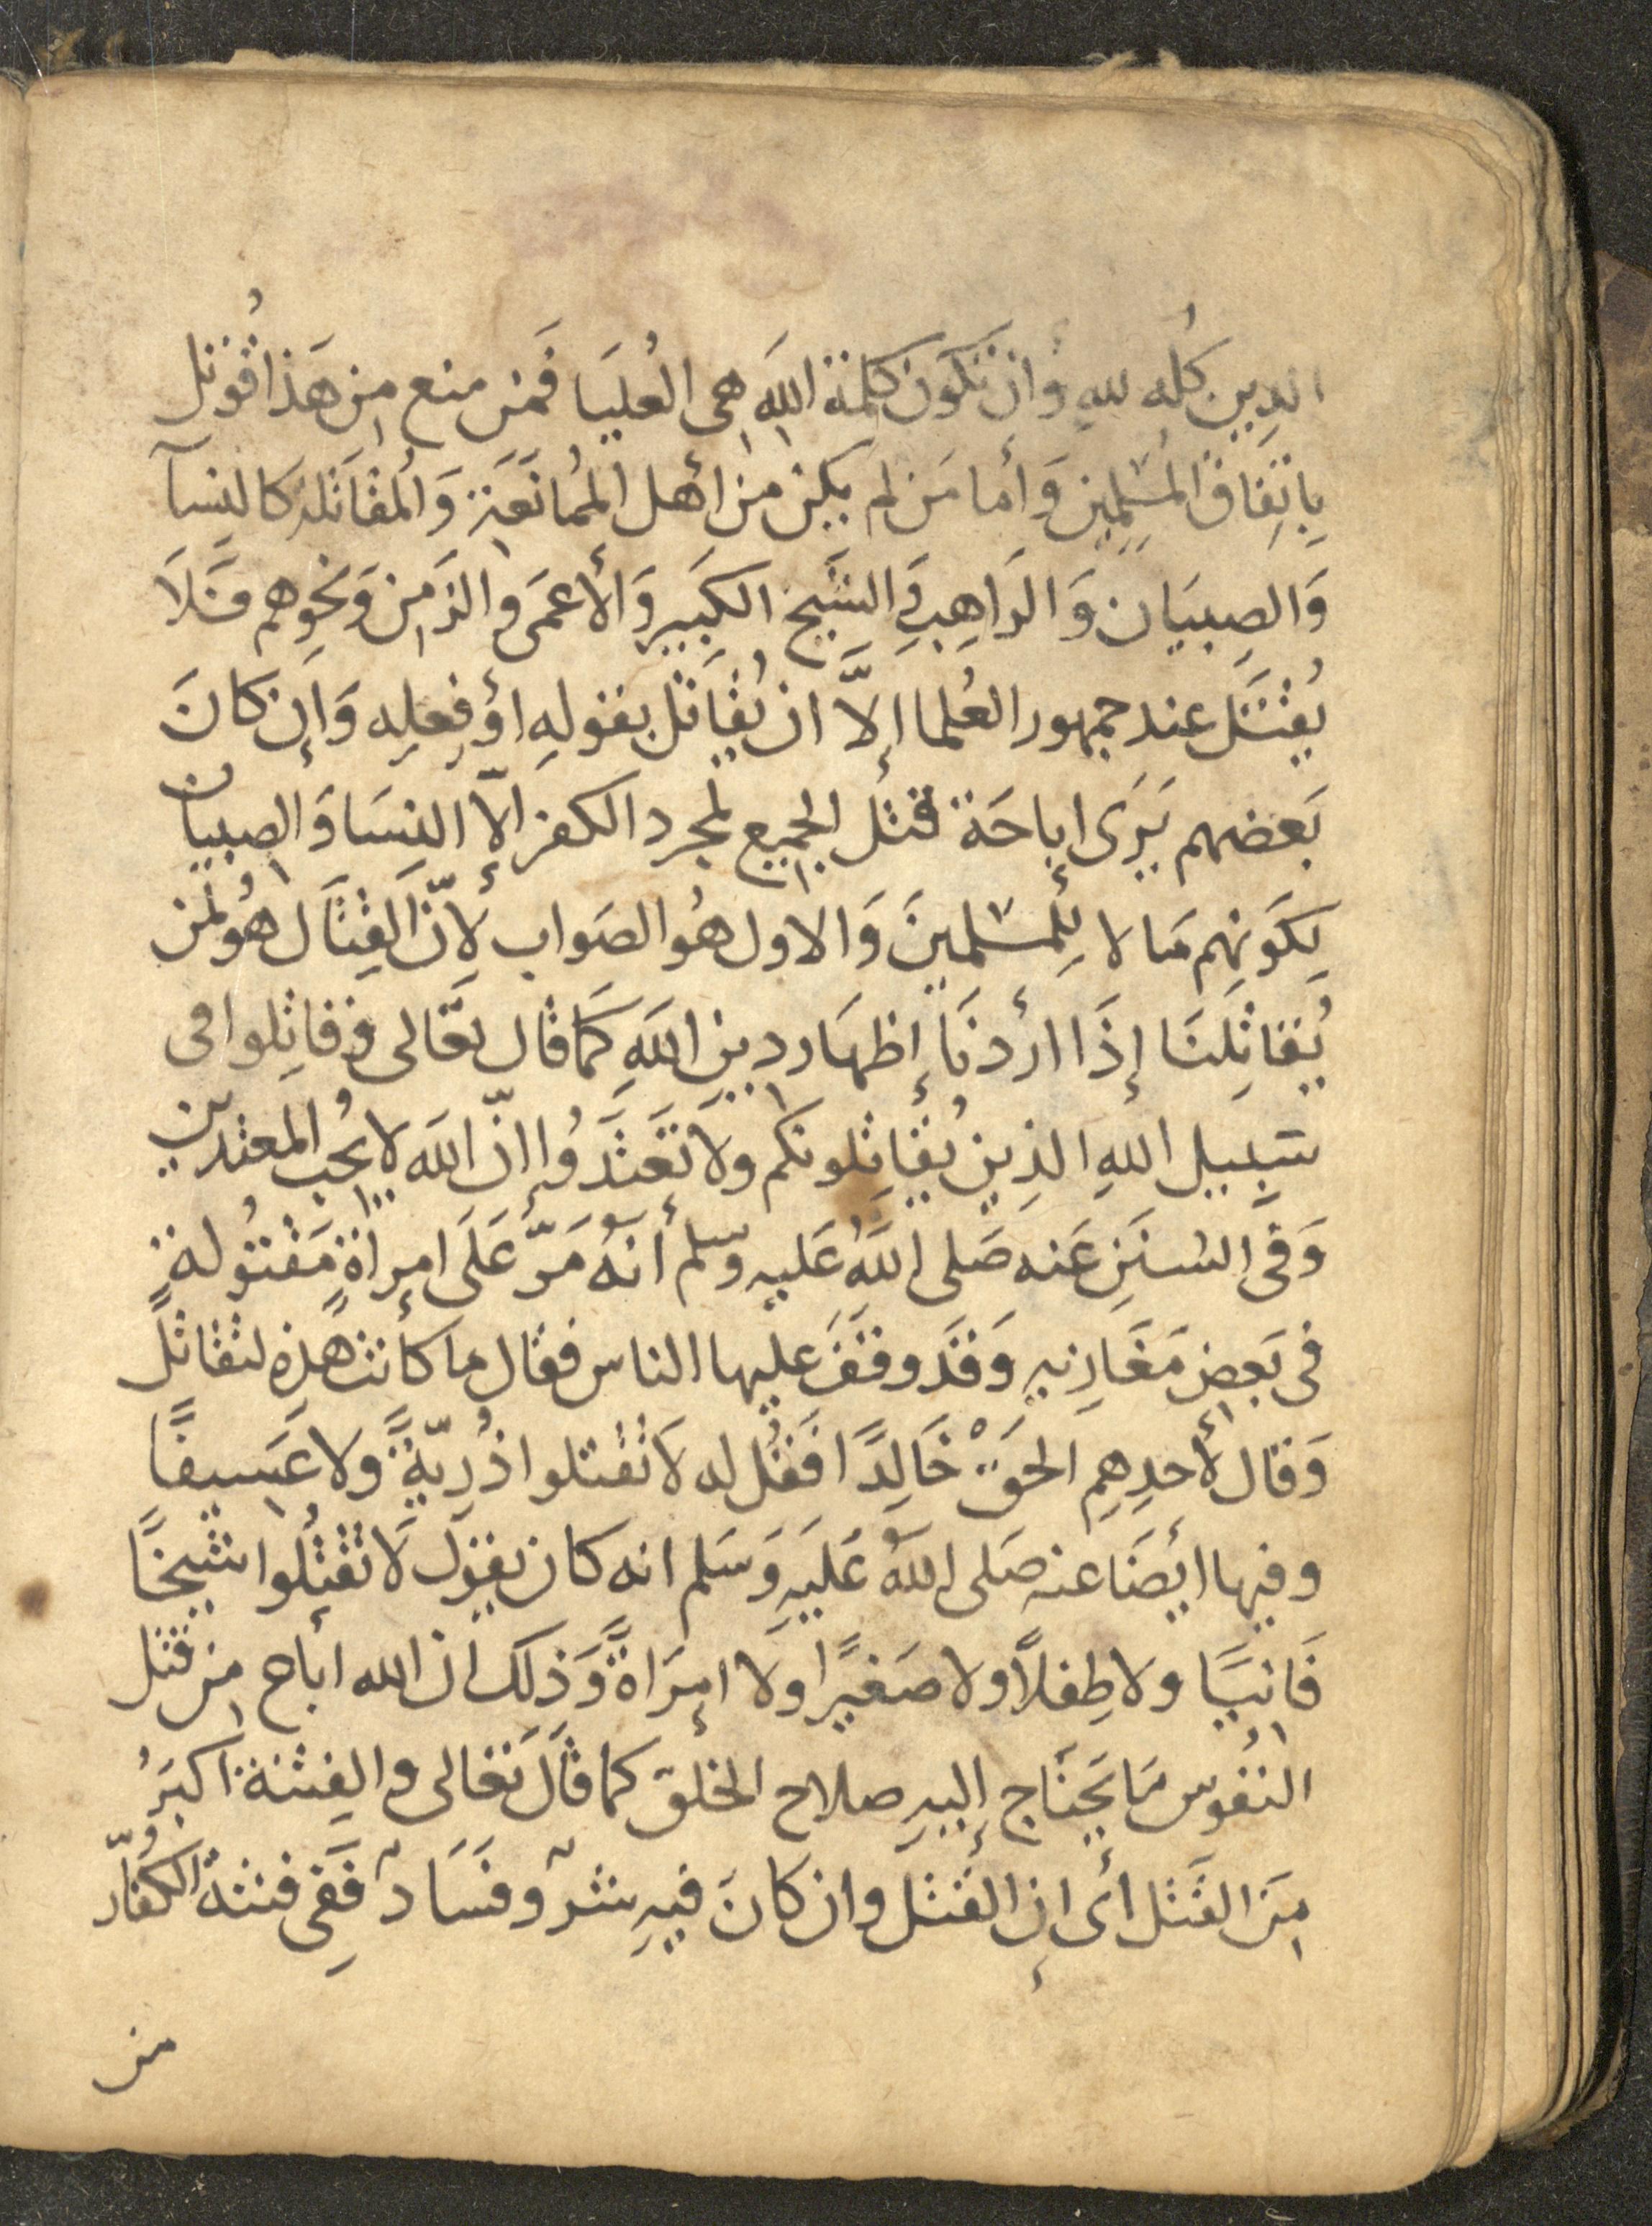 الدِين كُله لله وَان تَكون كلمة اللَه هى العُليَا فمَن منع مِن هَذا قُوتل
بِاتِفَاق المُسْلِمِين وَأما مَن لم يكن من أهل المُمانَعَة وَالمُقَاتَلَه كالنِسآ
وَالصِبيَان وَالرَاهِبِ وَالشَيخ الكَبيرِ وَالأعمَى والزَمِن وَنحوِهم فَلَا
يُقْتَل عند جمهور العُلما إلاَّ ان يُقَاتل بقولهِ اوْ فِعلِه وَإن كانَ
بَعضهم يَرَى إباحَة قتْل الجميع لمجرد الكفر إلّا النسَا وَالصِبيان
لِكَونِهم مَالا لِلمسْلمينَ وَالاول هُو الصَواب لأِنّ القِتَال هُو لمن
يُقاتِلنَا إذَا اردنَا إظهَار دِين اللَهِ كَمَا قال تعَالى وَقاتِلوا فى
سَبِيل اللهِ الذِين يُقَاتِلونكم ولاَ تَعْتَدُوا إنّ اللَه لا يُحِب المعتدين
وَفى السُنَن عَنه صَلى اللَّهُ عَليه وسلم أنهُ مَرّ عَلَى امرِأةٍ مَقْتُولةٍ
فى بَعض مَغَازيهِ وَقَد وقَفَ عليها الناس فقال ما كانت هذِه لتقاتلَ
وَقال لأحدِهِم الحَقْ خَالِدًا فَقُل له لاَ تقتلوا ذُرِيّةً ولا عَسِيفًا
وفيها ايضَا عنه صَلى اللهُ عَليهِ وَسَلم انه كان يقول لاَ تَقْتُلوا شَيخًا
فَانيًا ولا طِفلاً ولا صَغيرًا ولا امرَاةً وَذلك ان الله اباح مِن قتل
النفُوس مَا يَحتَاج إليهِ صلاح الخلق كما قالَ تعَالى والفِتنة اكبَرُ
مِنَ القَتل أى إن القتل وان كانَ فيهِ شرٌ وفسَادٌ فَفِى فتنة الكُفّار
من